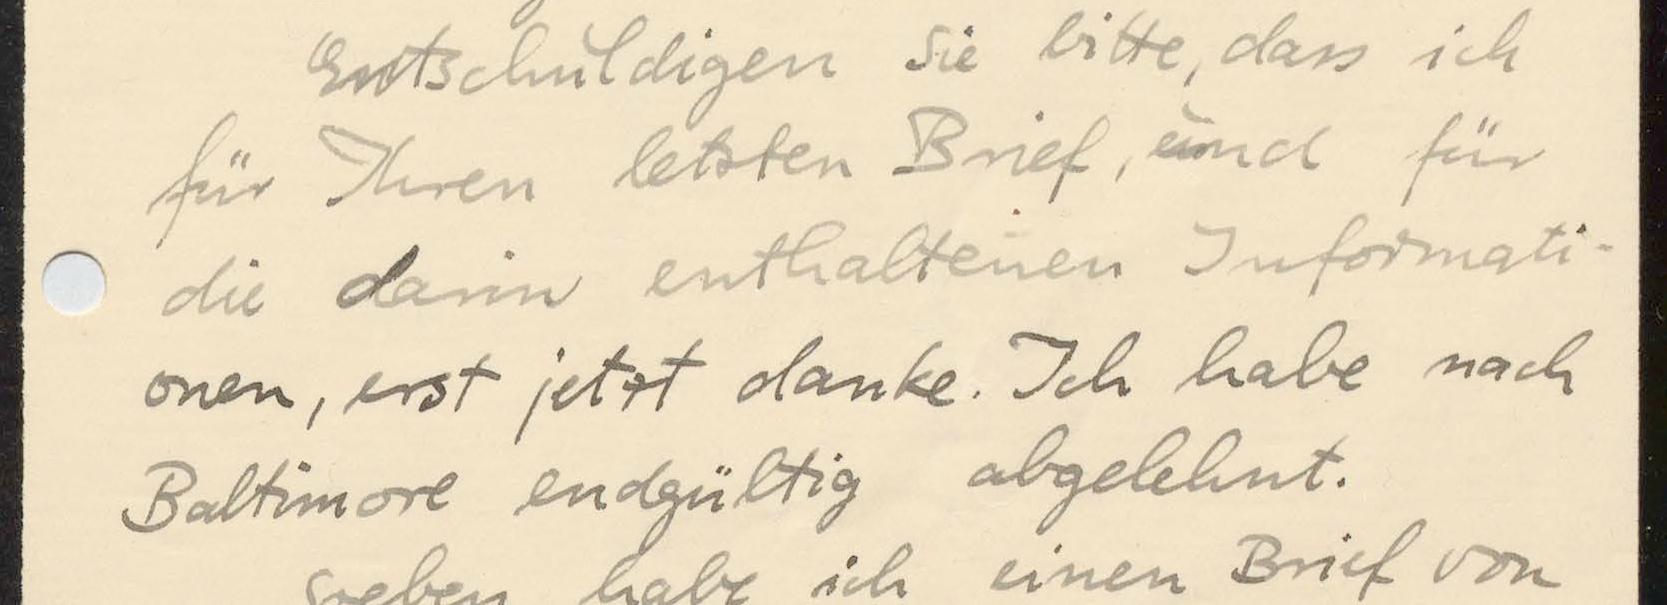 Entschuldigen Sie bitte, dass ich
für Ihren letzten Brief, und für
die darin enthaltenen Informati-
onen, erst jetzt danke. Ich habe nach
Baltimore endgültig abgelehnt.
Soeben habe ich einen Brief von